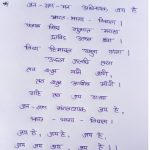 जन-गण-मन अधिनायक जय हे
भारत-भाग्य-विधाता ।
पंजाब सिंध गुजरात मराठा
द्राविड़ उत्कल बंग ।
विंध्य हिमाचल यमुना गंगा
उच्छल जलधि तरंग
तव शुभ नामे जागे
तव शुभ आशिष मांगे
गाहे तव जय गाथा ।
जन-गण मंगलदायक जय हे
भारत-भाग्य-विधाता ।
जय हे, जय हे, जय हे,
जय जय जय जय हे ।।